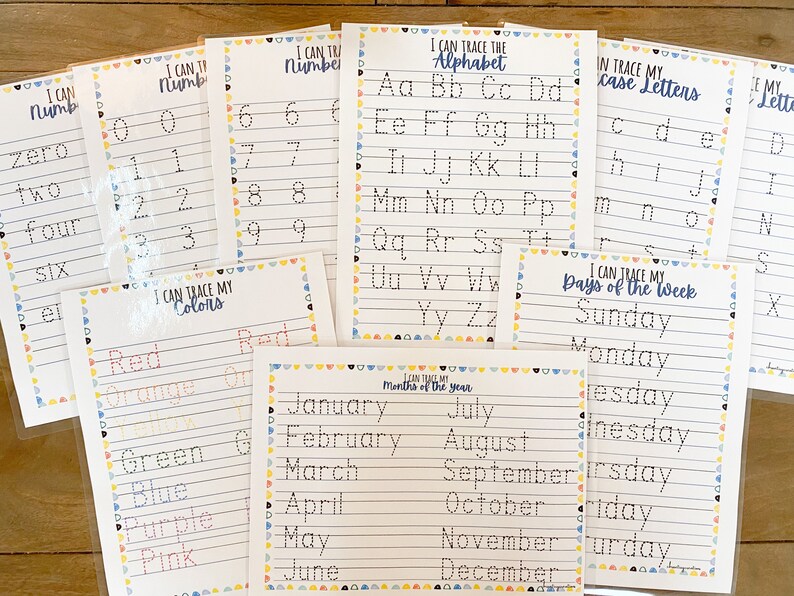 I CAN
Number
zero
two
four
six
I CAN TRACE
Numbe
0 0
1 1
2 2
3 3
I CAN TRACE
Number
6 6 6
7 7 7
8 8 8
9 9 9
I CAN TRACE THE
Alphabet
Aa Bb Cc Dd
Ee Ff Gg Hh
Ii Jj Kk Ll
Mm Nn Oo Pp
Qq Rr Ss Tt
Uu Vv Ww
Yy Zz
TRACE MY
case Letters
c d e
h i j
m n o
r s t
TRACE MY
Letters
D
I
N
S
X
I CAN TRACE MY
Colors
Red Red
Orange Or
Yellow Y
Green G
Blue
Purple
Pink
I CAN TRACE MY
Months of the year
January July
February August
March September
April October
May November
June December
I CAN TRACE MY
Days of the Week
Sunday
Monday
esday
nesday
rsday
riday
urday